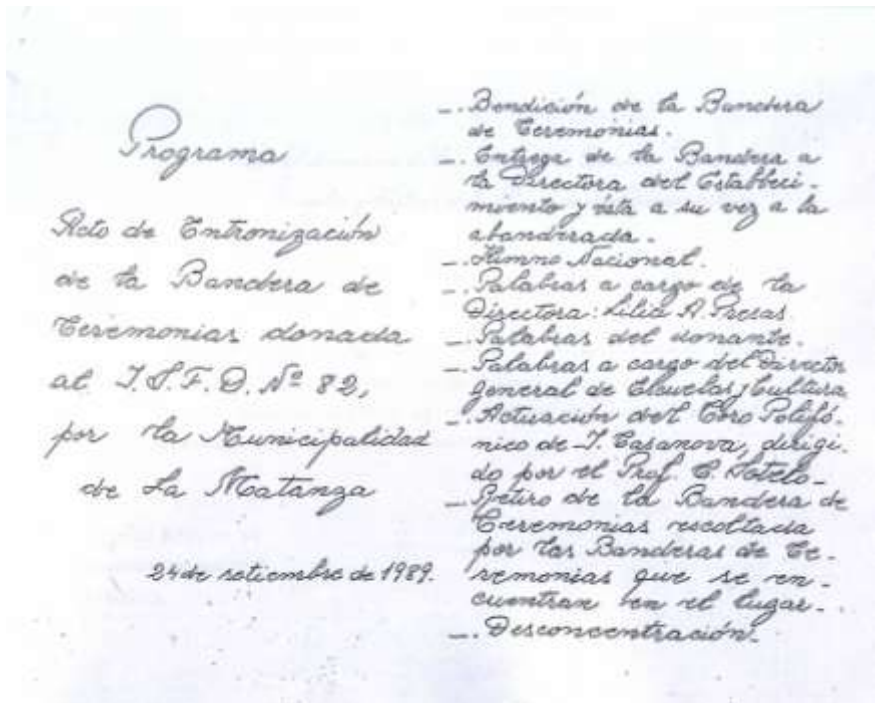 Programa
Acto de Entronización
de la Bandera de
Ceremonias donada
al I.S.F.D. Nº 82,
por la Municipalidad
de La Matanza
24 de setiembre de 1989.
_. Bendición de la Bandera
de Ceremonias.
_. Entrega de la Bandera a
la Directora del Estableci-
miento y ésta a su vez a la
abanderada.
_. Himno Nacional.
_. Palabras a cargo de la
Directora: Lilia A. Presas.
_. Palabras del donante.
_. Palabras a cargo del Director
General de Escuelas y Cultura
_. Actuación del Coro Polifó-
nico de I. Casanova, dirigi-
do por el Prof. C. Sotelo_
_. Retiro de la Bandera de
Ceremonias escoltada
por las Banderas de Ce-
remonias que se en-
cuentran en el lugar_.
_. Desconcentración_